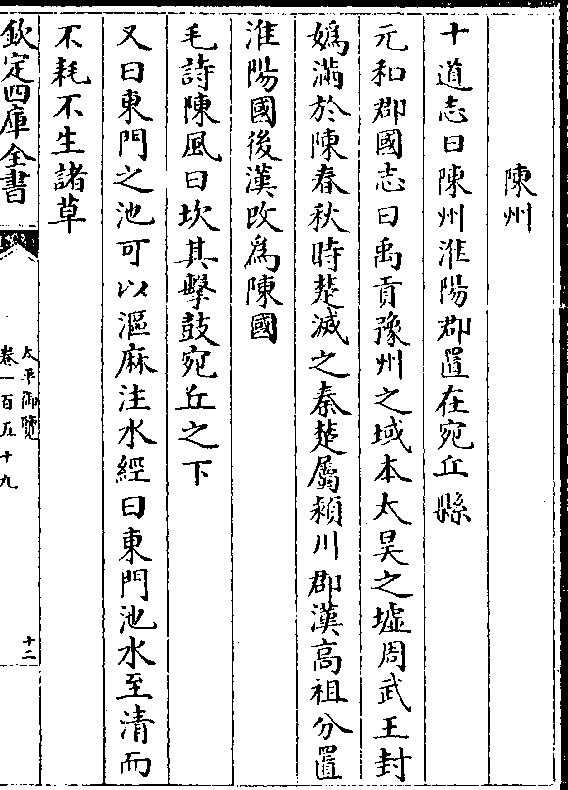 陳州
十道志曰陳州淮陽郡置在宛丘縣
元和郡國志曰禹貢豫州之域本太昊之墟周武王封
媯滿於陳春秋時楚滅之秦楚屬潁川郡漢高祖分置
淮陽國後漢改為陳國
毛詩陳風曰坎其擊鼓宛丘之下
又曰東門之池可以漚麻注水經曰東門池水至清而
不耗不生諸草
欽定四庫全書
太平御覽
卷一百五十九
十二